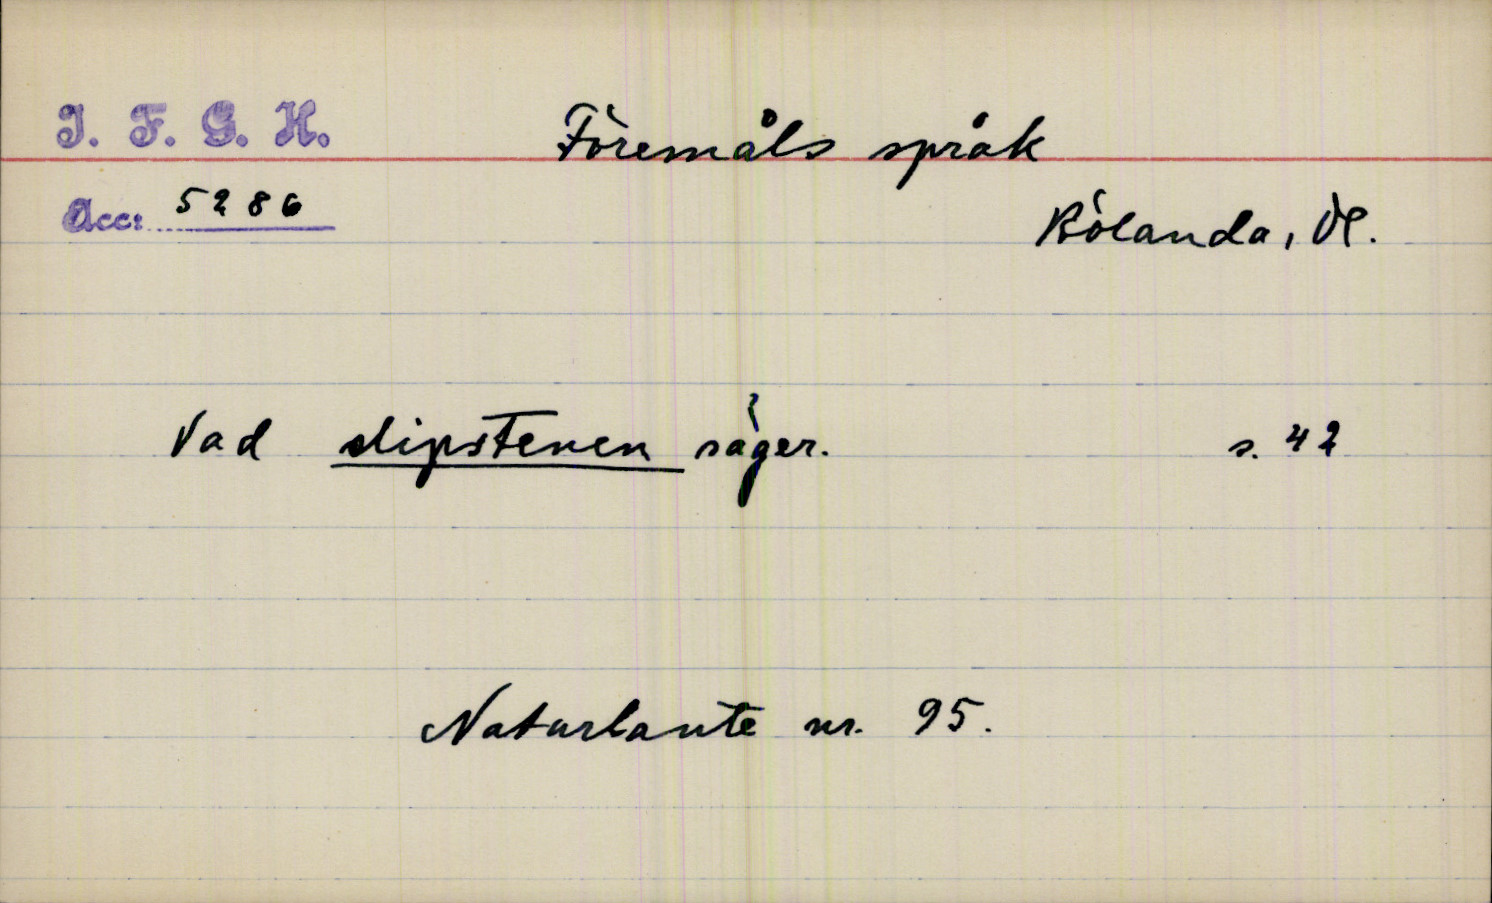 I. F. G. H.
Föremåls språk
Acc: 5286
Rölanda, Dl.
Vad slipstenen säger. s. 42
Naturlaute nr. 95.